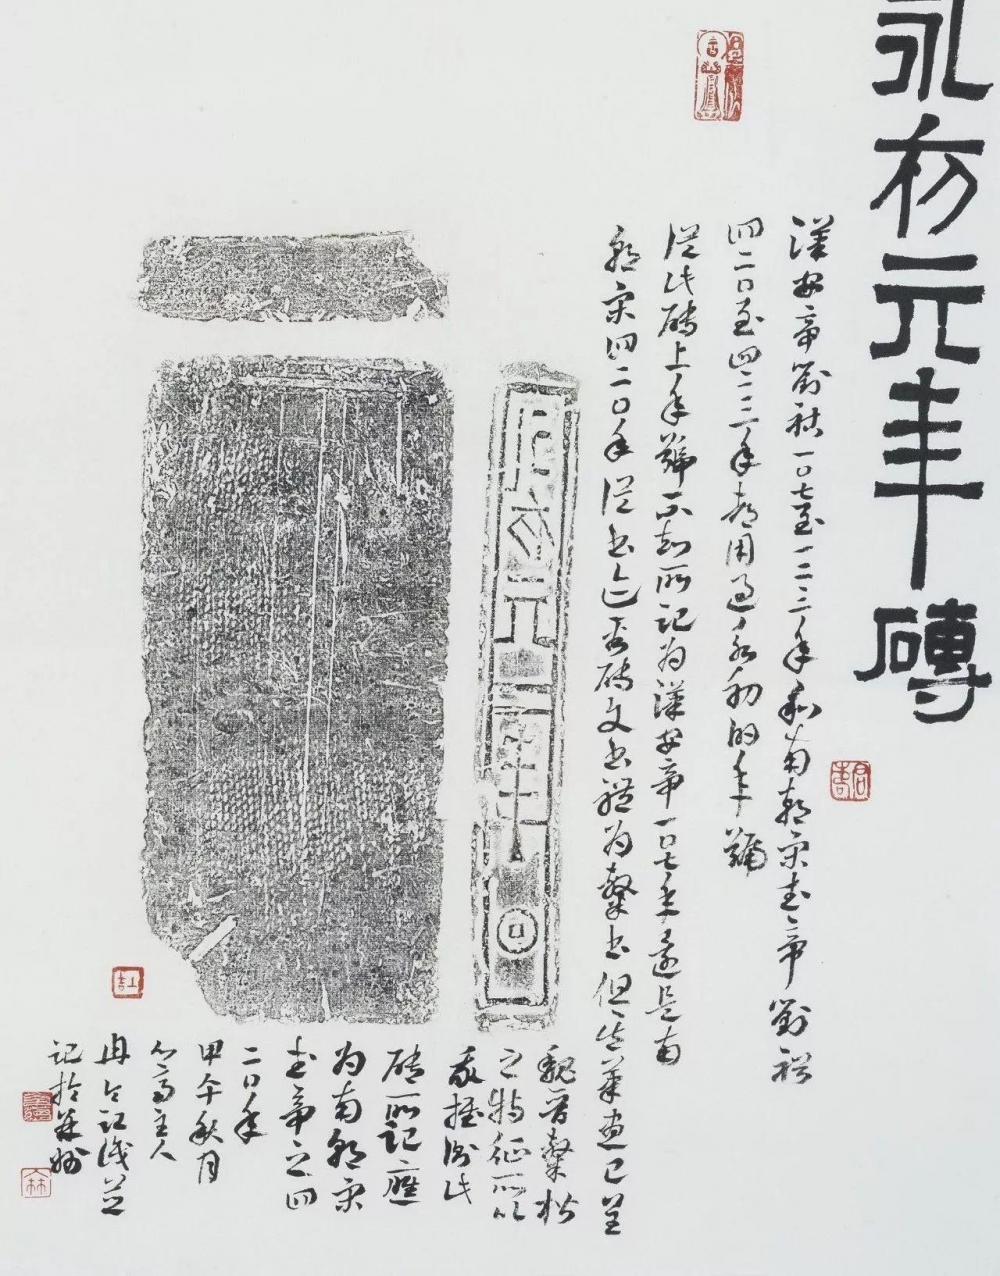 永初元年磚
漢安帝劉祜一〇七至一二三年和南朝宋武帝劉裕
四二〇至四二三年都用過永初的年號
從此磚上年號不知所記為漢安帝一〇七年還是南
朝宋四二〇年從書迹看磚文書體為隸書但其筆畫已呈
魏晉隸楷
之特征所以
我推測此
磚所記應
為南朝宋
武帝之四
二〇年
甲午秋月
心齋主人
冉令江識并
記於
永初元年